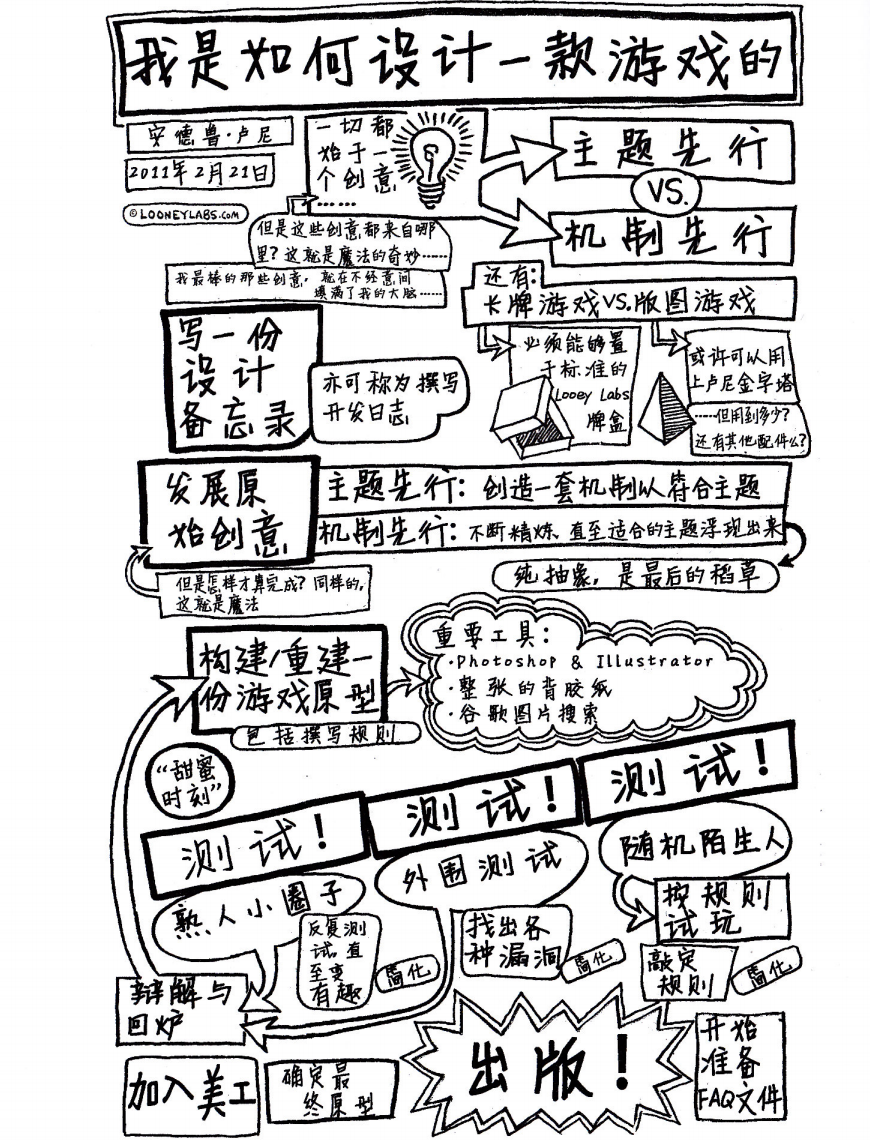 我是如何设计一款游戏的
安德鲁·卢尼
2011年2月21日
© LOONEYLABS.COM
一切都
始于一
个创意
……
但是这些创意都来自哪
里？这就是魔法的奇妙……
我最棒的那些创意，就在不经意间
填满了我的大脑……
主题先行
VS.
机制先行
还有：
卡牌游戏VS.版图游戏
必须能够置
于标准的
Looey Labs
牌盒
或许可以用
上卢尼金字塔
……但用到多少？
还有其他配件么？
写一份
设计
备忘录
亦可称为撰写
开发日志
发展原
始创意
主题先行：创造一套机制以符合主题
机制先行：不断精炼、直至适合的主题浮现出来
纯抽象，是最后的稻草
但是怎样才算完成？同样的，
这就是魔法
构建/重建一
份游戏原型
包括撰写规则
重要工具：
·Photoshop & Illustrator
·整张的背胶纸
·谷歌图片搜索
“甜蜜
时刻”
测试！
测试！
测试！
熟人小圈子
外围测试
随机陌生人
反复测
试，直
至变
有趣
简化
找出各
种漏洞
简化
按规则
试玩
敲定
规则
简化
辩解与
回炉
加入美工
确定最
终原型
出版！
开始
准备
FAQ文件